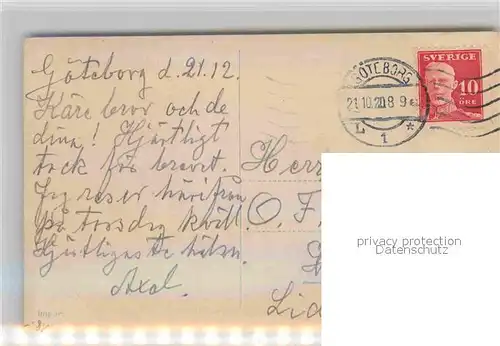 Göteborg d. 21.12.
Käre bror och de
dina! Hjärtligt
tack för brevet.
Jag reser härifrån
på torsdag kväll.
Hjärtligaste hälsn.
Axel.
Herr
O. F.
Lid
GÖTEBORG
21.10.20 8-9
L 1 *
SVERIGE
10
ÖRE
privacy protection
Datenschutz